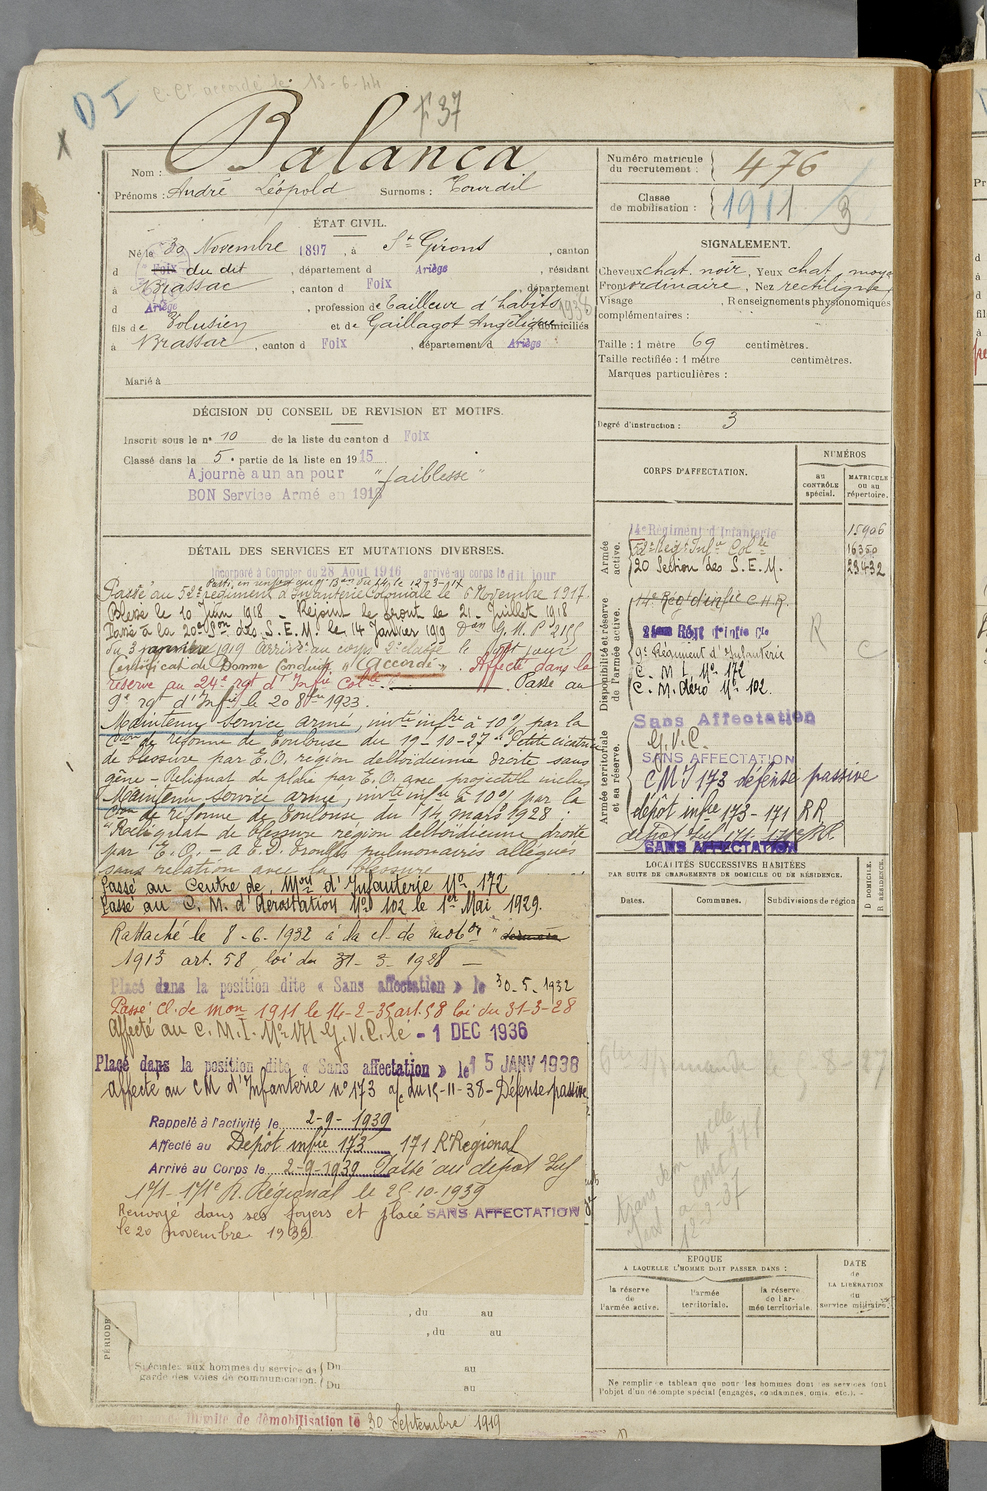 C. Ct accordé le 13-6-44
D I
X
F 37
Nom : Balança
Prénoms : André Léopold Surnoms : Tourdil
ÉTAT CIVIL.
Né le 30 Novembre 1897, à St Girons, canton
d Foix du dit, département d Ariège, résidant
à Brassac, canton d Foix, département
d Ariège, profession de Tailleur d'habits
fils de Volusien et de Gaillagot Angélique domiciliés
à Brassac, canton d Foix, département d Ariège
Marié à
DÉCISION DU CONSEIL DE REVISION ET MOTIFS.
Inscrit sous le n° 10 de la liste du canton d Foix
Classé dans la 5e partie de la liste en 1915
Ajourné a un an pour "faiblesse"
BON Service Armé en 1916
DÉTAIL DES SERVICES ET MUTATIONS DIVERSES.
Incorporé à Compter du 28 Août 1916 arrivé au corps le dit jour
Passé au 52e régiment d'Infanterie Coloniale le 6 Novembre 1917.
Blessé le 10 Juin 1918 - Rejoint le front le 21 Juillet 1918
Passé à la 20e Son des S.E.M. le 14 Janvier 1919
du 3 janvier 1919 Arrivé au corps 2e classe le dit jour
Certificat de Bonne Conduite "Accordé". Affecté dans la
réserve au 24e rgt d'Infie Colle. Passé au
9e rgt d'Infie le 20 8bre 1923.
Maintenu service armé, invté infre à 10% par la
Con de réforme de Toulouse du 19-10-27 "Petite cicatrice
de blessure par E.O. région deltoïdienne droite sans
gêne - Reliquat de plaie par E.O. avec projectile inclus
Maintenu service armé, invté infre à 10% par la
Con de réforme de Toulouse du 14 mars 1928 :
"Reliquat de blessure région deltoïdienne droite
par E.O. - A E.D. Troubles pulmonaires allégués
sans relation avec la blessure
Passé au Centre de Mon d'Infanterie No 172
Passé au C. M. d'Aérostation No 102 le 1er Mai 1929.
Rattaché le 8-6-1932 à la cl. de mobon
1913 art. 58, loi du 31-3-1928 —
Placé dans la position dite « Sans affectation » le 30-5-1932
Passé Cl. de mon 1911 le 14-2-35 art. 58 loi du 31-3-28
Affecté au C.M.I. No 171 G.V.C. le - 1 DEC 1936
Placé dans la position dite « Sans affectation » le 15 JANV 1938
Affecté au CM d'Infanterie n° 173 a/c du 15-11-38 - Défense passive
Rappelé à l'activité le 2-9-1939
Affecté au Dépot infie 173 171 R Régional
Arrivé au Corps le 2-9-1939 Passé au dépot Inf
171-171e R. Régional le 25-10-1939
Renvoyé dans ses foyers et placé SANS AFFECTATION
le 20 novembre 1939
, du au
, du au
PÉRIODE
Spéciales aux hommes du service de Du au
garde des voies de communication. Du au
limite de démobilisation le 30 Septembre 1919
Numéro matricule du recrutement : 476
Classe de mobilisation : 1911 / 3
SIGNALEMENT.
Cheveux chat. noir, Yeux chat. moyen
Front ordinaire, Nez rectiligne
Visage , Renseignements physionomiques
complémentaires :
1938
Taille : 1 mètre 69 centimètres.
Taille rectifiée : 1 mètre centimètres.
Marques particulières :
Degré d'instruction : 3
CORPS D'AFFECTATION.
NUMÉROS
au CONTRÔLE spécial.
MATRICULE ou au répertoire.
Armée active.
14e Régiment d'Infanterie 15906
52e Régt Infie Colle 16350
20 Section des S.E.M. 23432
Disponibilité et réserve de l'armée active.
14e Régt d'infie C.H.R.
24eme Régt d'infie Cle
9e Régiment d'Infanterie
C. M. I. No 172
C. M. Aéro No 102.
R
C
Armée territoriale et sa réserve.
Sans Affectation
G.V.C.
SANS AFFECTATION
CMI 173 défense passive
dépôt infie 173-171 RR
dépôt Inf 171-171e R.R.
SANS AFFECTATION
LOCALITÉS SUCCESSIVES HABITÉES
PAR SUITE DE CHANGEMENTS DE DOMICILE OU DE RÉSIDENCE.
Dates. Communes. Subdivisions de région
D DOMICILE.
R RÉSIDENCE.
12-9-37
EPOQUE
A LAQUELLE L'HOMME DOIT PASSER DANS :
la réserve de l'armée active.
l'armée territoriale.
la réserve de l'armée territoriale.
DATE de LA LIBÉRATION du service militaire.
Ne remplir ce tableau que pour les hommes dont les services font
l'objet d'un décompte spécial (engagés, condamnés, omis, etc.).